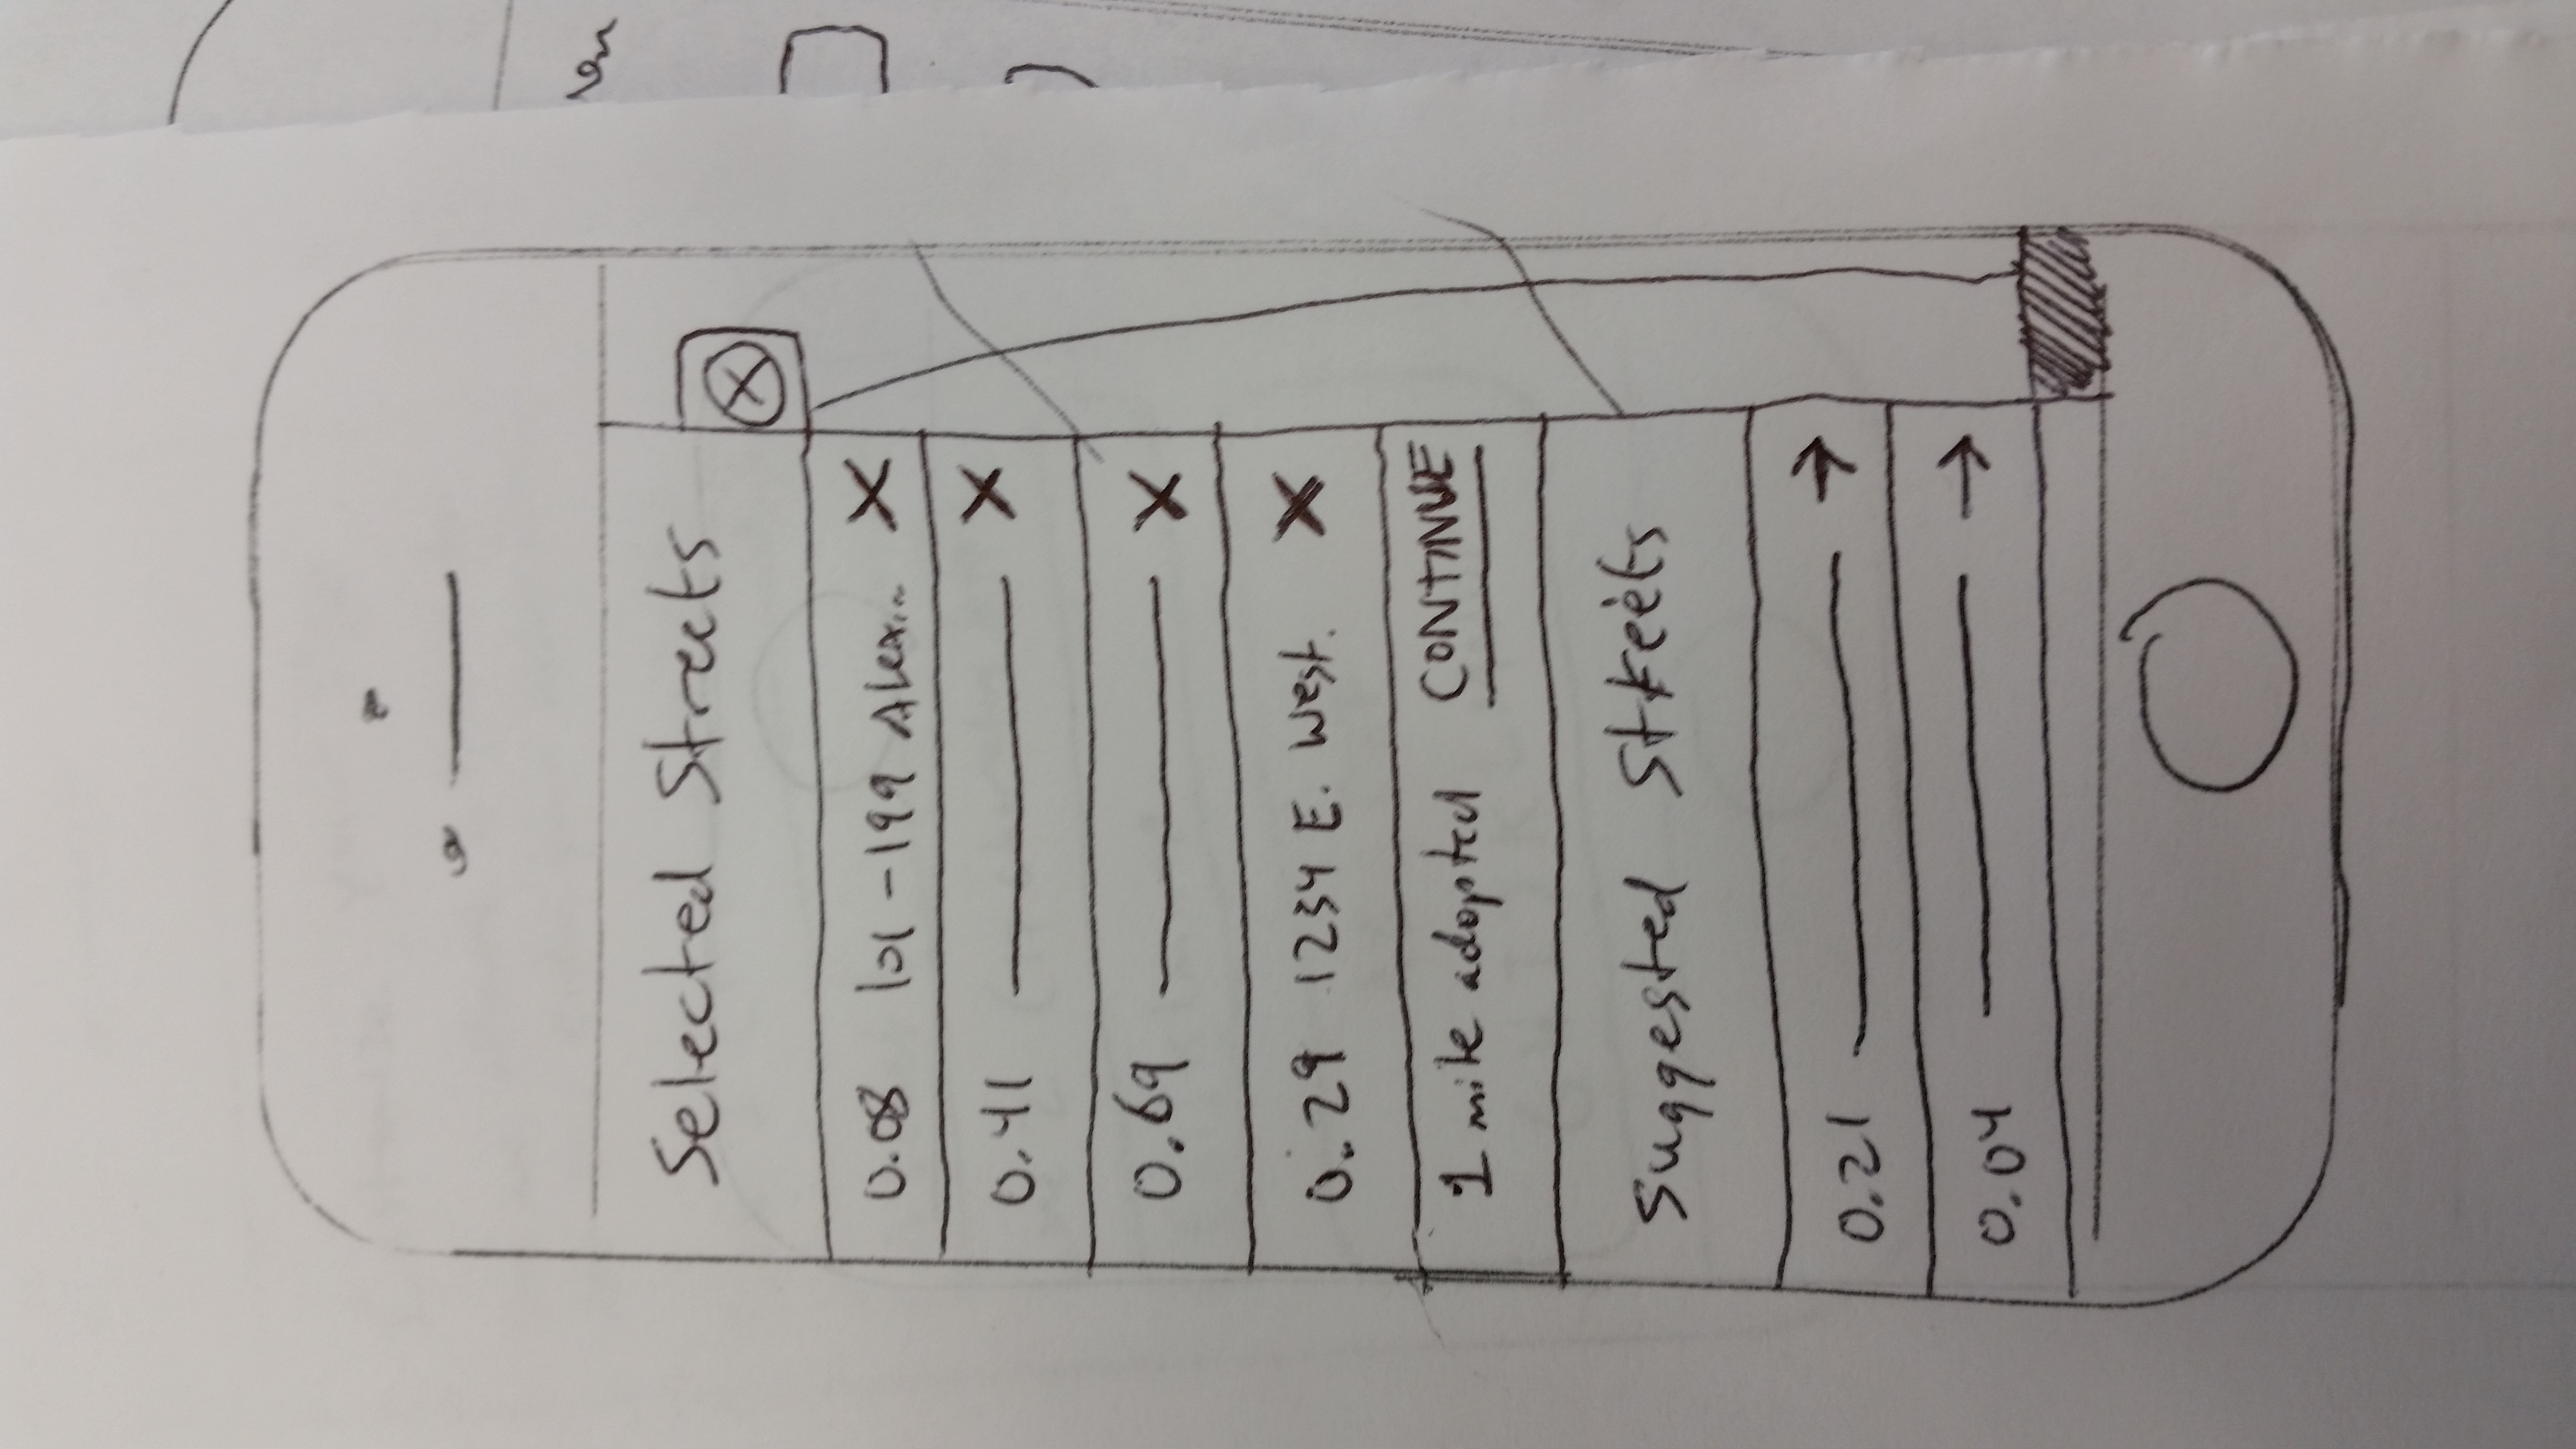 Selected Streets
0.08 101-199 Alex...
0.41
0.69
0.29 1234 E. West.
1 mile adopted CONTINUE
Suggested Streets
0.21
0.04